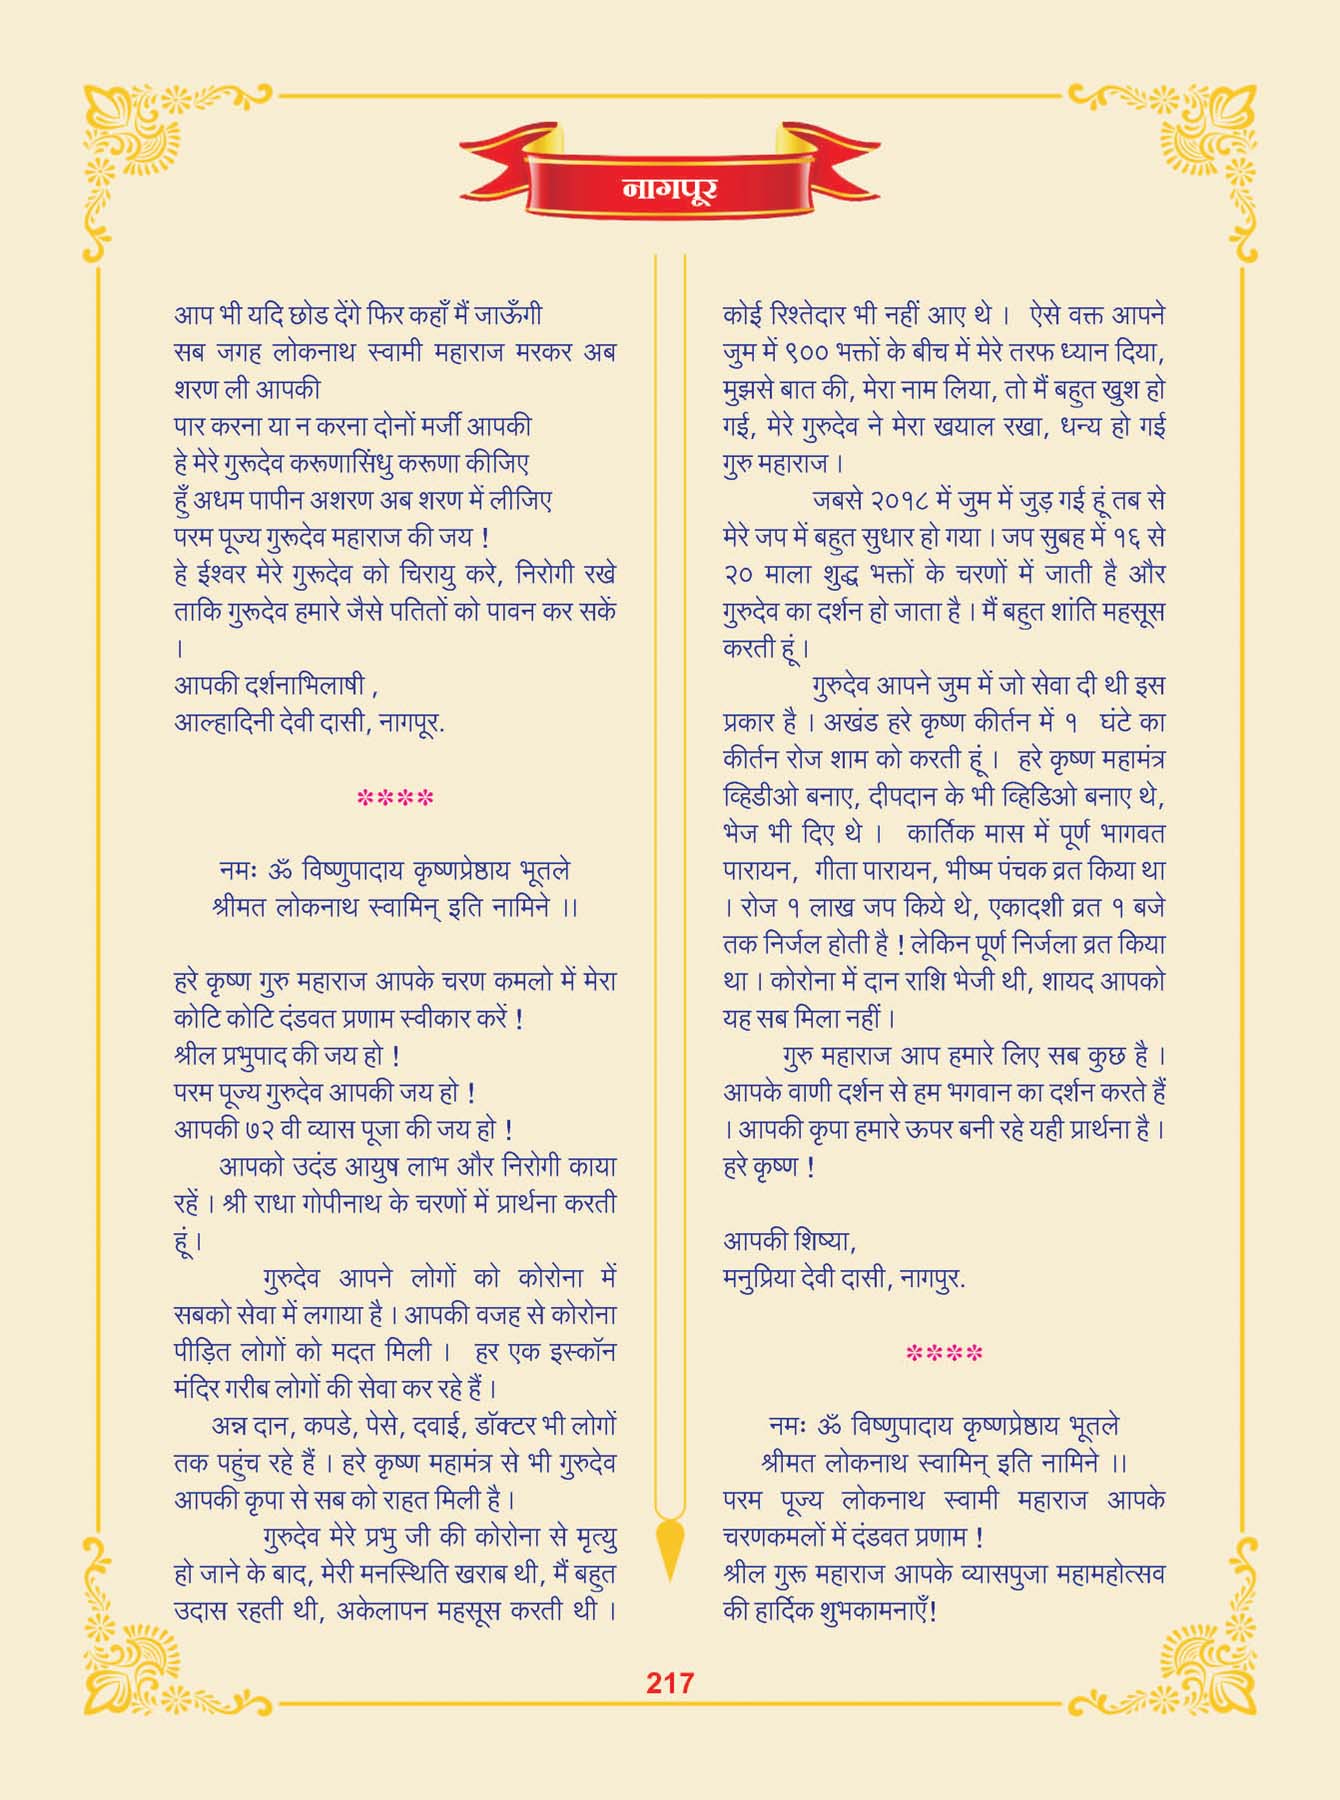 नागपूर
आप भी यदि छोड देंगे फिर कहाँ मैं जाऊँगी
सब जगह लोकनाथ स्वामी महाराज मरकर अब
शरण ली आपकी
पार करना या न करना दोनों मर्जी आपकी
हे मेरे गुरूदेव करूणासिंधु करूणा कीजिए
हुँ अधम पापीन अशरण अब शरण में लीजिए
परम पूज्य गुरूदेव महाराज की जय !
हे ईश्वर मेरे गुरूदेव को चिरायु करे, निरोगी रखे
ताकि गुरूदेव हमारे जैसे पतितों को पावन कर सकें
।
आपकी दर्शनाभिलाषी ,
आल्हादिनी देवी दासी, नागपूर.
****
नमः ॐ विष्णुपादाय कृष्णप्रेष्ठाय भूतले
श्रीमत लोकनाथ स्वामिन् इति नामिने ।।
हरे कृष्ण गुरु महाराज आपके चरण कमलो में मेरा
कोटि कोटि दंडवत प्रणाम स्वीकार करें !
श्रील प्रभुपाद की जय हो !
परम पूज्य गुरुदेव आपकी जय हो !
आपकी ७२ वी व्यास पूजा की जय हो !
आपको उदंड आयुष लाभ और निरोगी काया
रहें । श्री राधा गोपीनाथ के चरणों में प्रार्थना करती
हूं ।
गुरुदेव आपने लोगों को कोरोना में
सबको सेवा में लगाया है । आपकी वजह से कोरोना
पीड़ित लोगों को मदत मिली । हर एक इस्कॉन
मंदिर गरीब लोगों की सेवा कर रहे हैं ।
अन्न दान, कपडे, पेसे, दवाई, डॉक्टर भी लोगों
तक पहुंच रहे हैं । हरे कृष्ण महामंत्र से भी गुरुदेव
आपकी कृपा से सब को राहत मिली है ।
गुरुदेव मेरे प्रभु जी की कोरोना से मृत्यु
हो जाने के बाद, मेरी मनस्थिति खराब थी, मैं बहुत
उदास रहती थी, अकेलापन महसूस करती थी ।
कोई रिश्तेदार भी नहीं आए थे । ऐसे वक्त आपने
जुम में ९०० भक्तों के बीच में मेरे तरफ ध्यान दिया,
मुझसे बात की, मेरा नाम लिया, तो मैं बहुत खुश हो
गई, मेरे गुरुदेव ने मेरा खयाल रखा, धन्य हो गई
गुरु महाराज ।
जबसे २०१८ में जुम में जुड़ गई हूं तब से
मेरे जप में बहुत सुधार हो गया । जप सुबह में १६ से
२० माला शुद्ध भक्तों के चरणों में जाती है और
गुरुदेव का दर्शन हो जाता है । मैं बहुत शांति महसूस
करती हूं ।
गुरुदेव आपने जुम में जो सेवा दी थी इस
प्रकार है । अखंड हरे कृष्ण कीर्तन में १ घंटे का
कीर्तन रोज शाम को करती हूं । हरे कृष्ण महामंत्र
व्हिडीओ बनाए, दीपदान के भी व्हिडिओ बनाए थे,
भेज भी दिए थे । कार्तिक मास में पूर्ण भागवत
पारायन, गीता पारायन, भीष्म पंचक व्रत किया था
। रोज १ लाख जप किये थे, एकादशी व्रत १ बजे
तक निर्जल होती है ! लेकिन पूर्ण निर्जला व्रत किया
था । कोरोना में दान राशि भेजी थी, शायद आपको
यह सब मिला नहीं ।
गुरु महाराज आप हमारे लिए सब कुछ है ।
आपके वाणी दर्शन से हम भगवान का दर्शन करते हैं
। आपकी कृपा हमारे ऊपर बनी रहे यही प्रार्थना है ।
हरे कृष्ण !
आपकी शिष्या,
मनुप्रिया देवी दासी, नागपुर.
****
नमः ॐ विष्णुपादाय कृष्णप्रेष्ठाय भूतले
श्रीमत लोकनाथ स्वामिन् इति नामिने ।।
परम पूज्य लोकनाथ स्वामी महाराज आपके
चरणकमलों में दंडवत प्रणाम !
श्रील गुरू महाराज आपके व्यासपुजा महामहोत्सव
की हार्दिक शुभकामनाएँ!
217